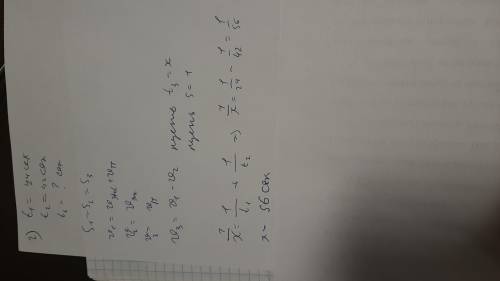 2) t₁ = 24 сек
t₂ = 42 сек
t₃ = ? сек
S₁ = S₂ = S₃
v₁ = vэск + vп
v₂ = vэск
v₃ = vп
v₃ = v₁ - v₂ пусть t₃ = x
пусть S = 1
1/x = 1/t₁ + 1/t₂ => 1/x = 1/24 - 1/42 = 1/56
x = 56 сек